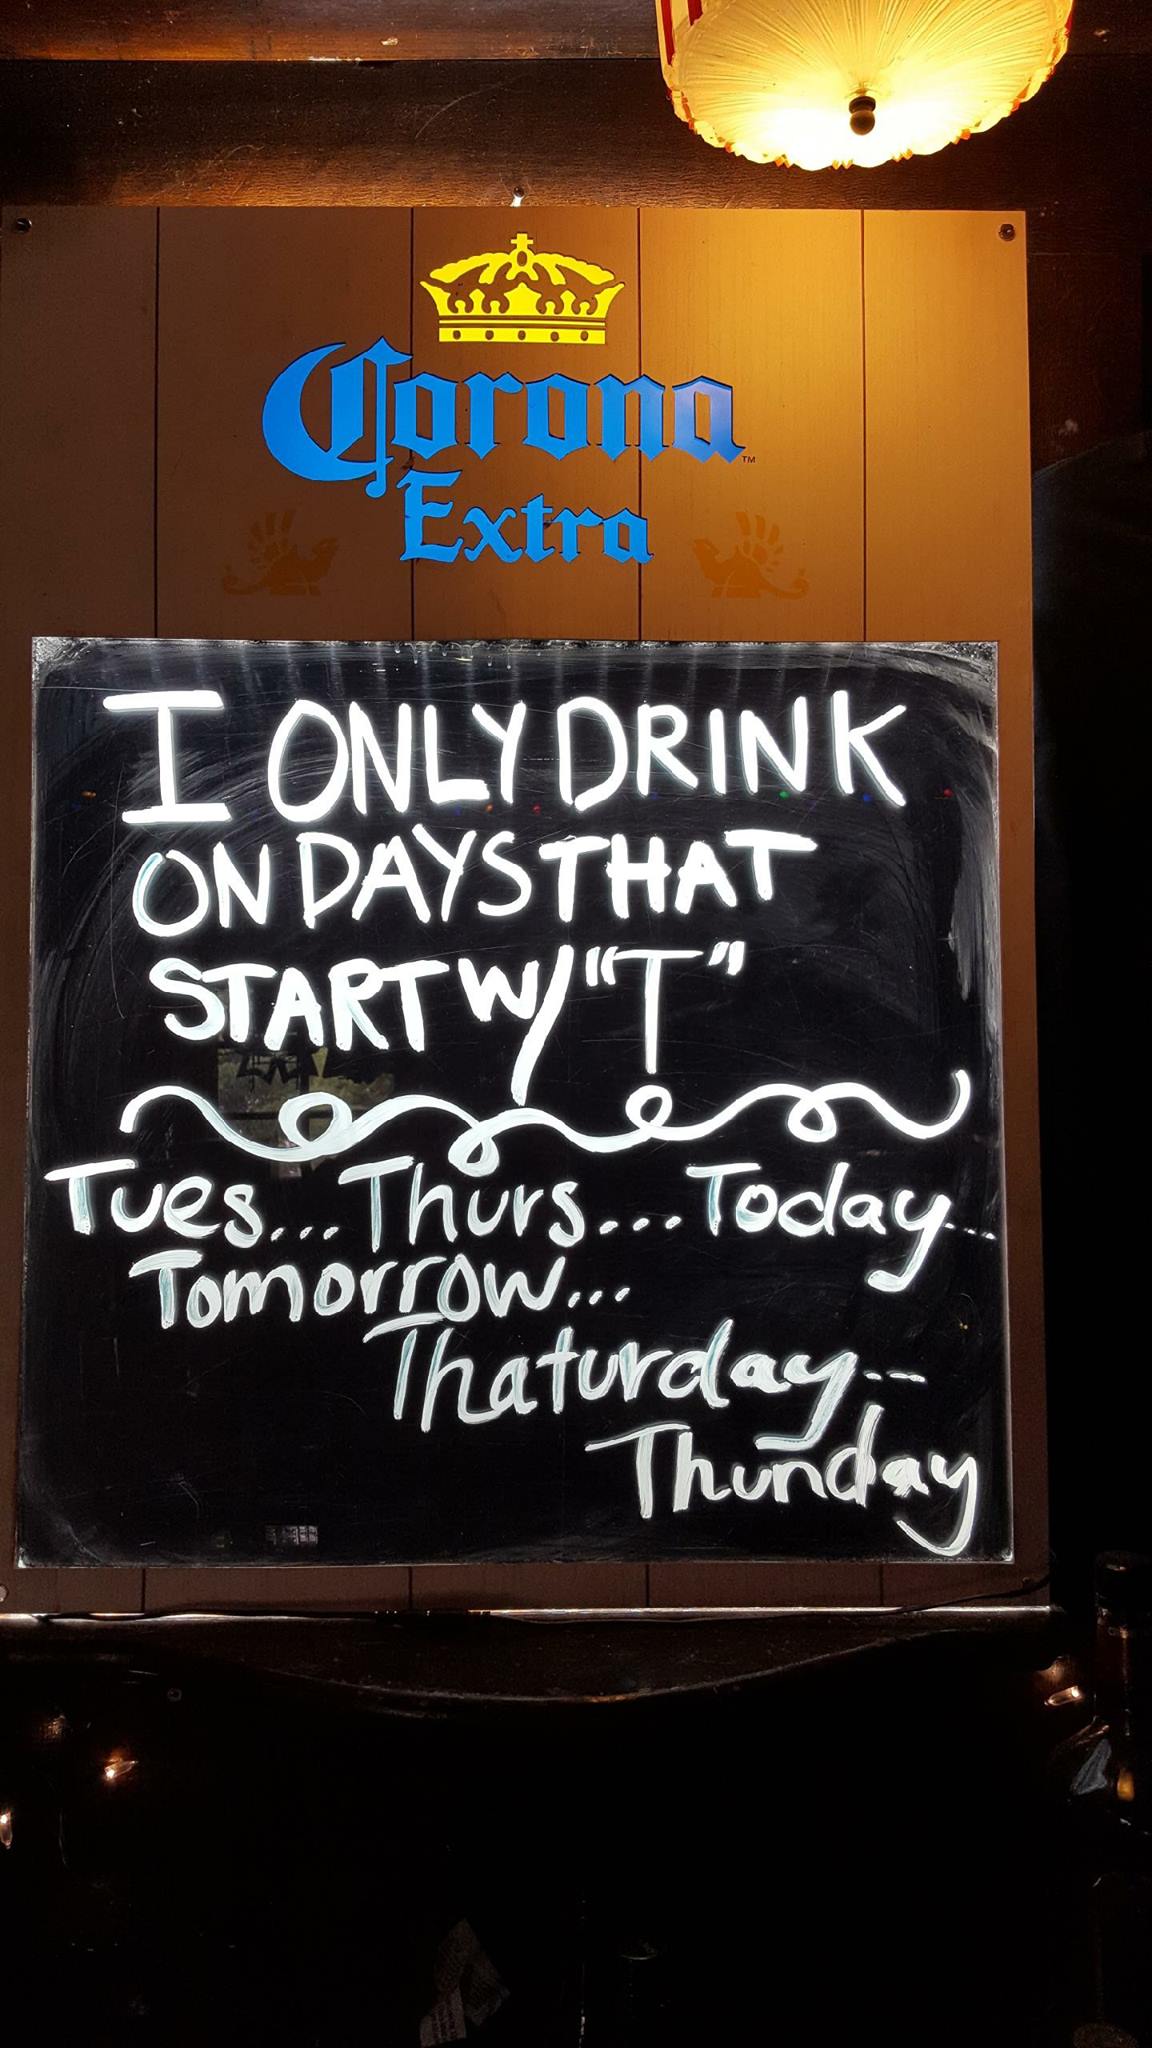 Corona
TM
Extra
I ONLY DRINK
ON DAYS THAT
START W/ "T"
Tues... Thurs.... Today...
Tomorrow...
Thaturday...
Thunday